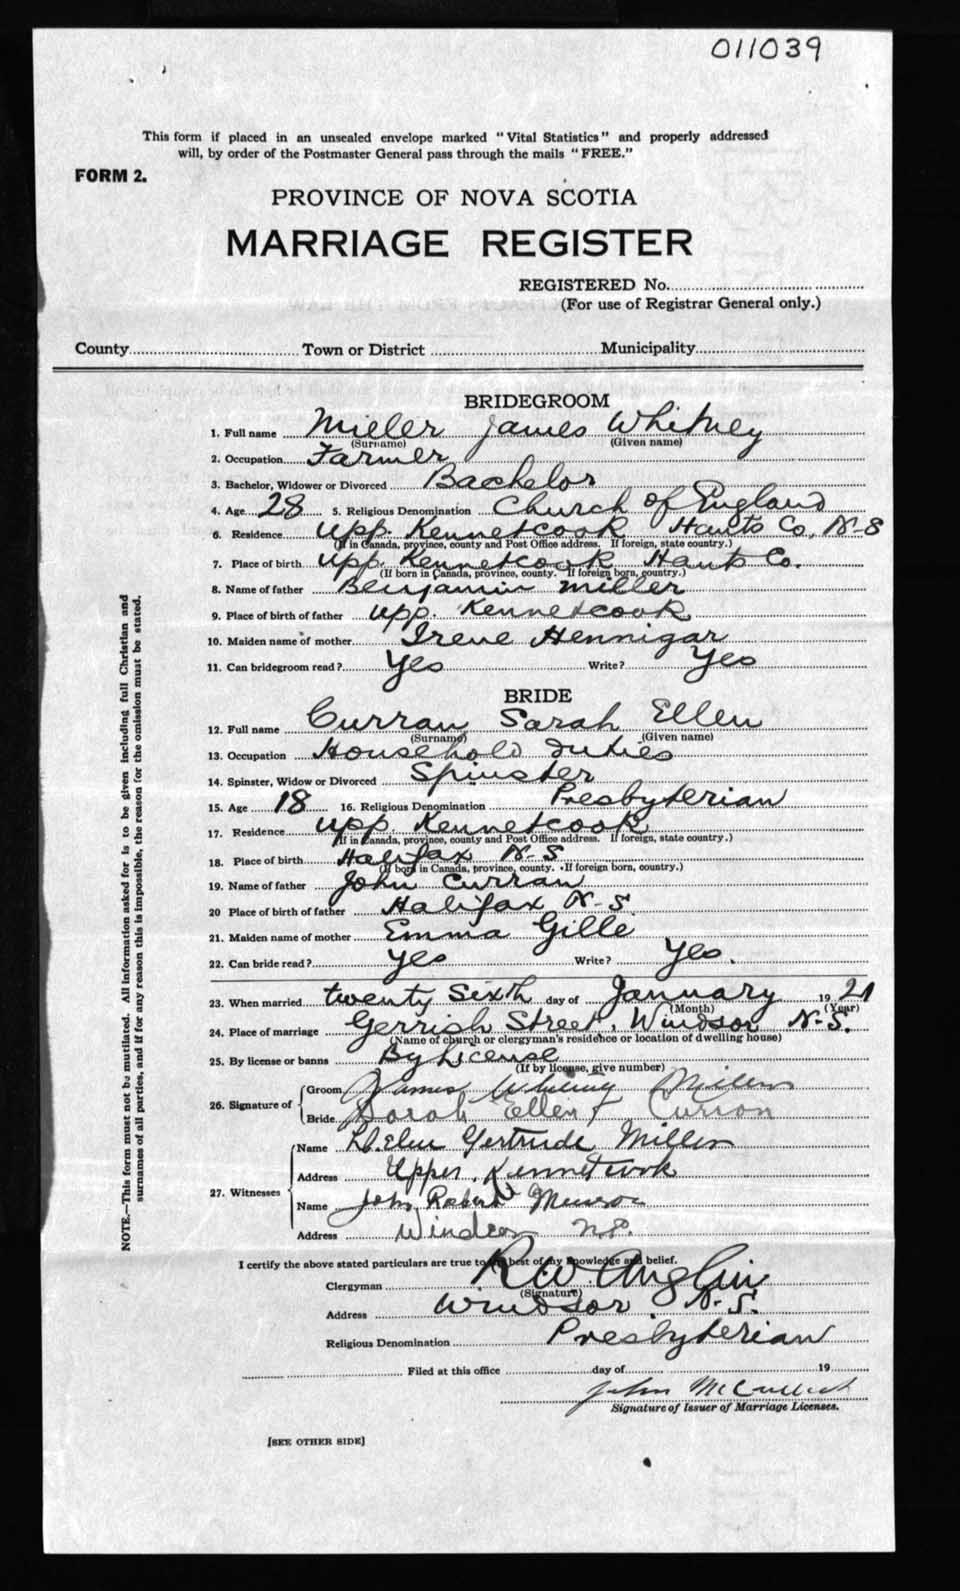 011039
This form if placed in an unsealed envelope marked "Vital Statistics" and properly addressed
will, by order of the Postmaster General pass through the mails "FREE."
FORM 2.
PROVINCE OF NOVA SCOTIA
MARRIAGE REGISTER
REGISTERED No.
(For use of Registrar General only.)
County Town or District Municipality
BRIDEGROOM
1. Full name Miller James Whitney
(Surname) (Given name)
2. Occupation Farmer
3. Bachelor, Widower or Divorced Bachelor
4. Age 28 5. Religious Denomination Church of England
6. Residence Upp. Kennetcook Hants Co, N-S
(If in Canada, province, county and Post Office address. If foreign, state country.)
7. Place of birth Upp. Kennetcook Hants Co.
(If born in Canada, province, county. If foreign born, country.)
8. Name of father Benjamin Miller
9. Place of birth of father Upp. Kennetcook
10. Maiden name of mother Irene Hennigar
11. Can bridegroom read? Yes Write? Yes
BRIDE
12. Full name Curran Sarah Ellen
(Surname) (Given name)
13. Occupation Household Duties
14. Spinster, Widow or Divorced Spinster
15. Age 18 16. Religious Denomination Presbyterian
17. Residence Upp. Kennetcook
(If in Canada, province, county and Post Office address. If foreign, state country.)
18. Place of birth Halifax N-S
(If born in Canada, province, county. If foreign born, country.)
19. Name of father John Curran
20 Place of birth of father Halifax N-S.
21. Maiden name of mother Emma Gille
22. Can bride read? Yes Write? Yes.
23. When married twenty Sixth day of January 1921
(Month) (Year)
24. Place of marriage Gerrish Street, Windsor N-S.
(Name of church or clergyman's residence or location of dwelling house)
25. By license or banns By License
(If by license, give number)
26. Signature of Groom James Whitney Miller
Bride Sarah Ellen Curran
27. Witnesses Name Gertrude Miller
Address Upper Kennetcook
Name John Robert Munro
Address Windsor N.S.
I certify the above stated particulars are true to the best of my knowledge and belief.
Clergyman R W Anglin
(Signature)
Address Windsor N-S.
Religious Denomination Presbyterian
Filed at this office day of 19
John McCulloch
Signature of Issuer of Marriage Licenses.
[SEE OTHER SIDE]
NOTE.—This form must not be mutilated. All information asked for is to be given including full Christian and
surnames of all parties, and if for any reason this is impossible, the reason for the omission must be stated.